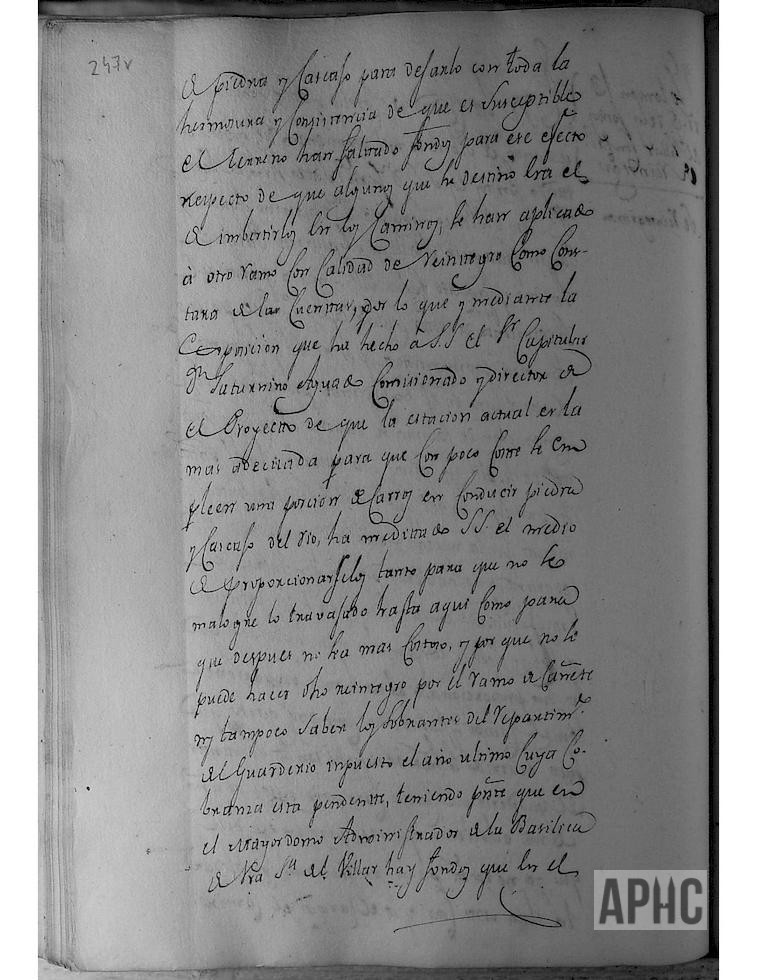 247v
de piedra y Cascajo para dejarlo con toda la
hermosura y Consistencia de que es Susceptible
el Terreno han faltado fondos para ese efecto
respecto de que algunos que se destinó era el
de imbertirlos en los Caminos, se han aplicado
à otro ramo Con Calidad de Reintegro Como Cons-
tara de las Cuentas, por lo que y mediante la
exposicion que ha hecho a S.S el Sr Capitular
Dn Saturnino Aguado Comisionado y director de
el Proyecto de que la estacion actual es la
mas adecuada para que Con poco Coste se em
pleen una porcion de Carros en Conducir piedra
y Cascajo del rio, ha meditado SS. el medio
de proporcionarselos tanto para que no se
malogre lo travajado hasta aqui Como para
que despues no sea mas Costoso, y por que no se
puede hacer dho reintegro por el ramo de Cañete
ny tampoco Saben los Sobrantes del Repartimto
del Guarderio inpuesto el año ultimo Cuya Co-
branza esta pendiente, teniendo prste que en
el Mayordomo Administrador de la Basilica
de Nra Sra del Villar hay fondos que en el
APHC